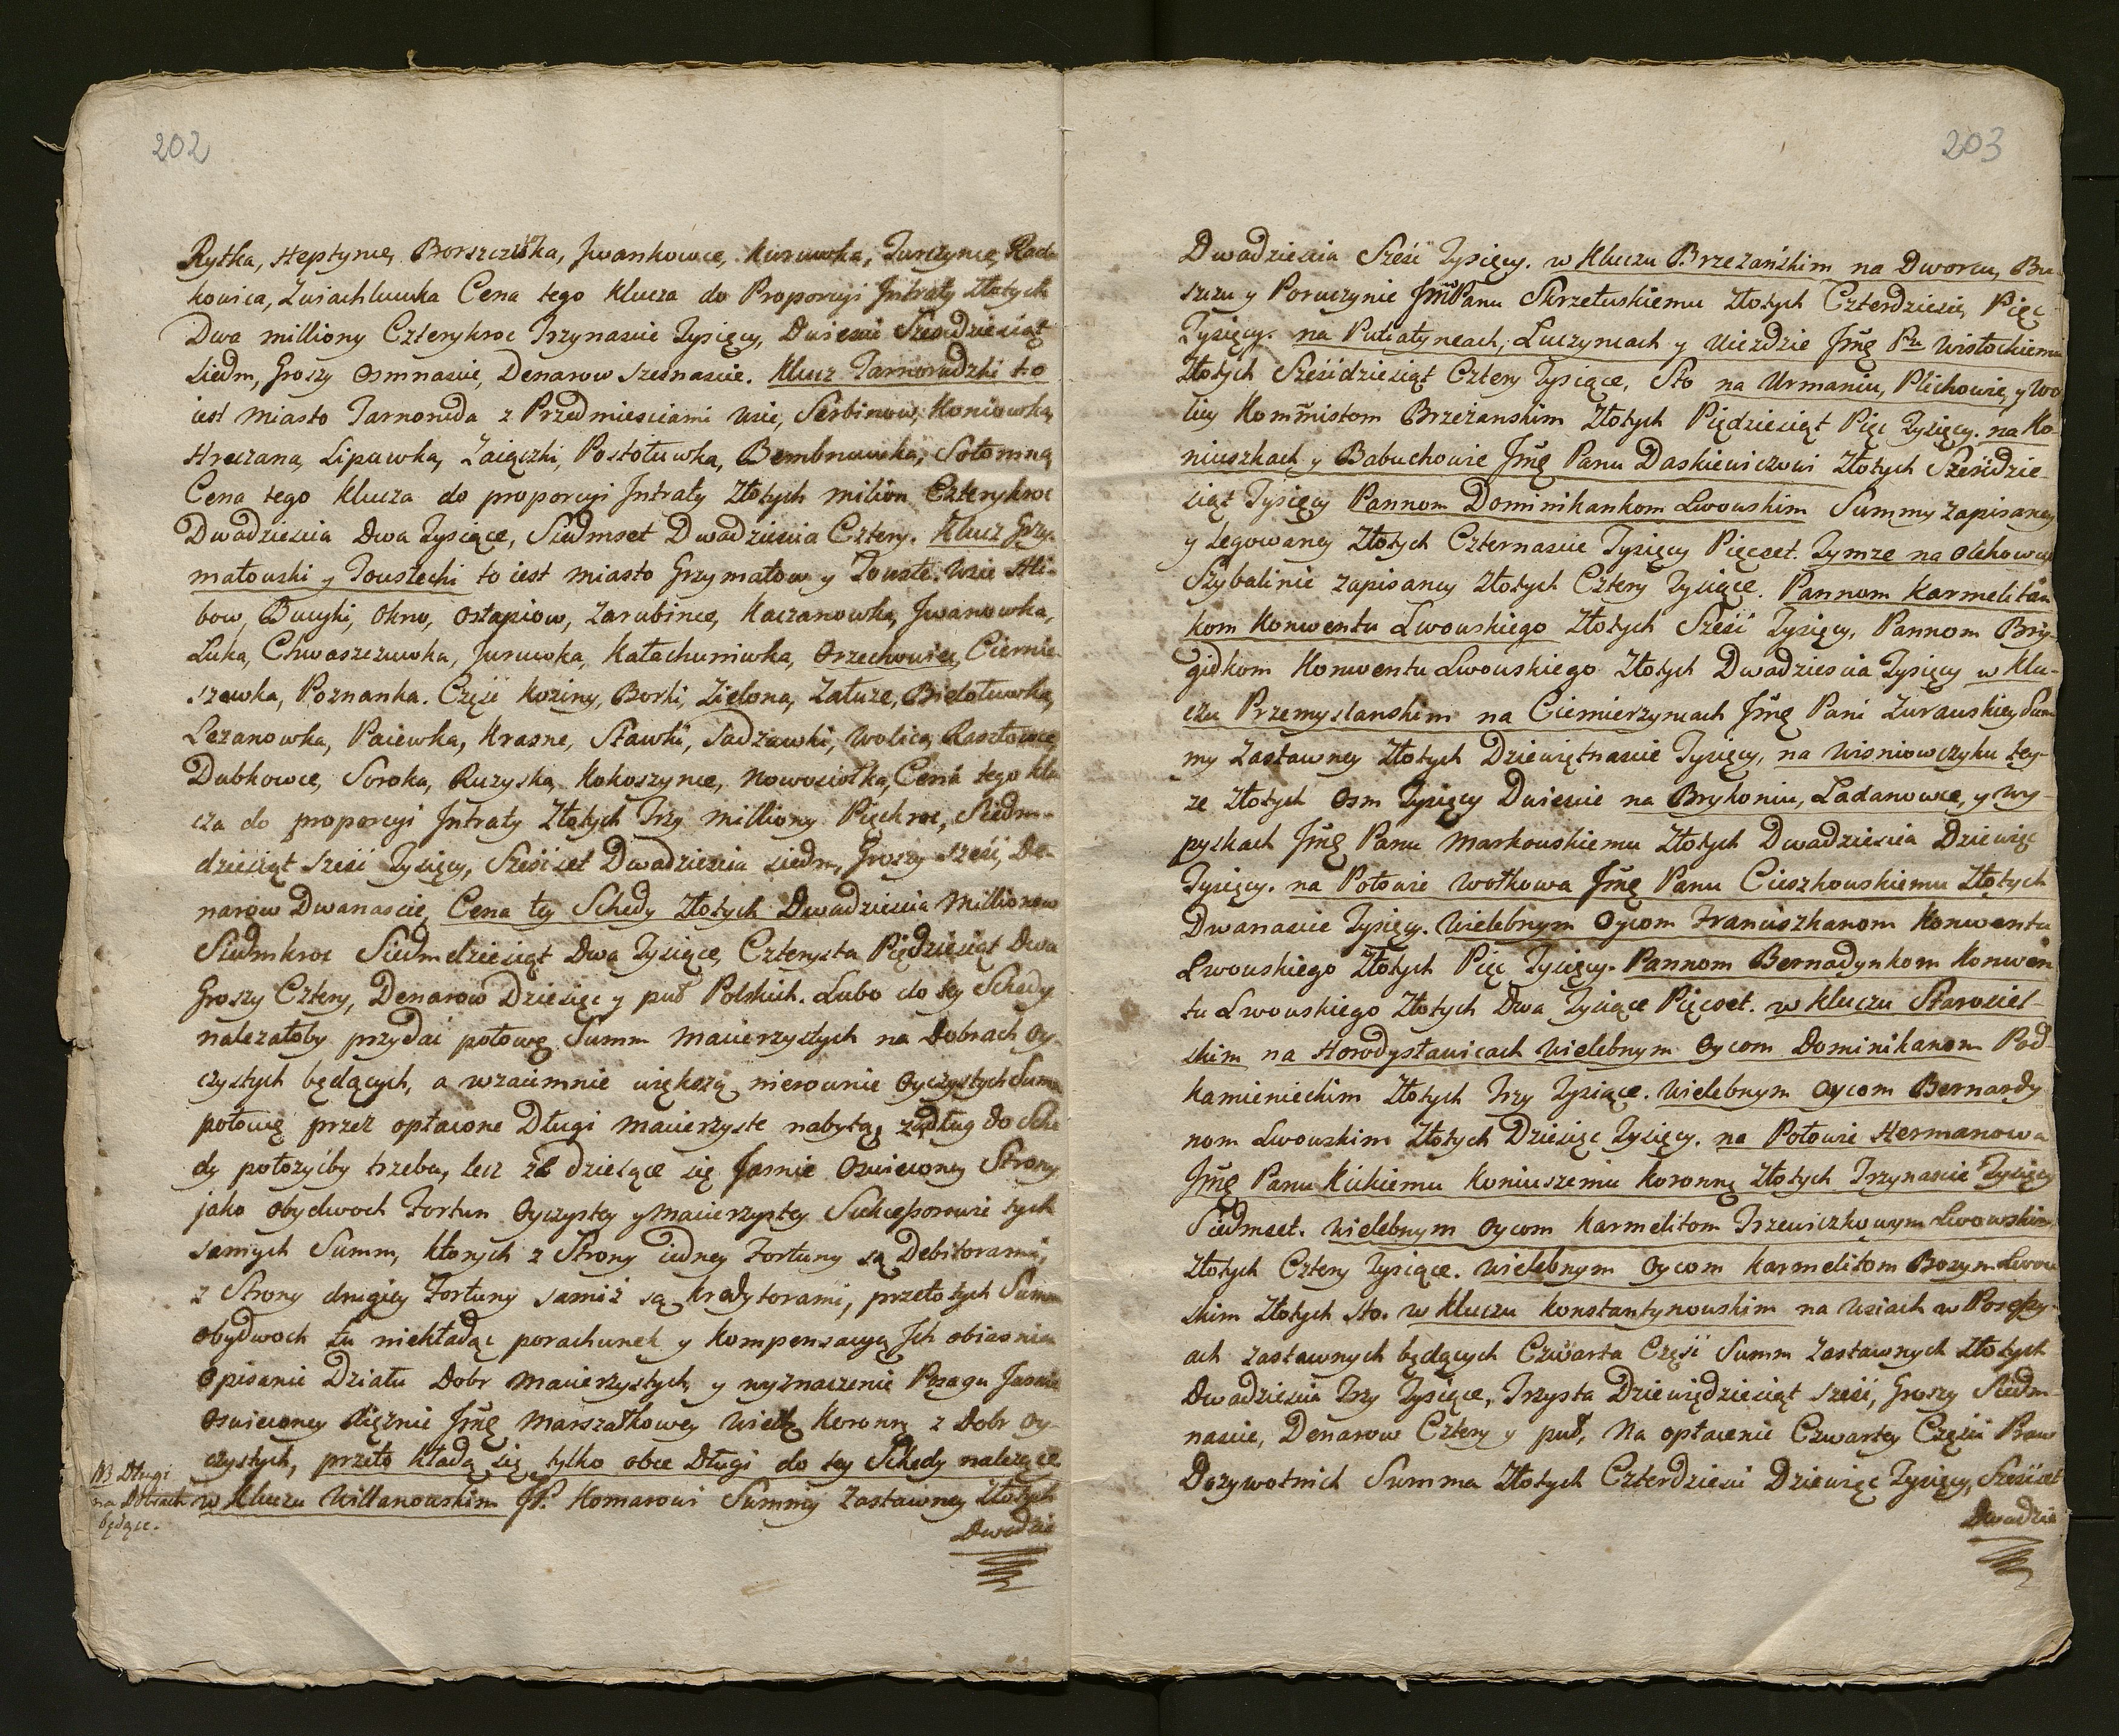 202
Rytka, Heptynce, Borszczuwka, Jwankowce, Kuruwka, Jurczynce, Rad
kowica, Zwiachluwka Cena tego Klucza do Proporcyi Jntraty Złotych
Dwa milliony Czterykroc Trzynascie Tysięcy, Dwiescie Szescdziesiąt
siedm, Groszy Osmnascie, Denarow szesnascie. Klucz Tarnorudzki to
iest Miasto Tarnoruda z Przedmiesciami Wsie, Serbinow, Koniowka,
Hreczana, Lipuwka, Zaiączki, Postołuwka, Bembnuwka, Sołomna,
Cena tego Klucza do proporcyi Jntraty Złotych milion Czterykroc
Dwadziescia Dwa Tysiące, Siedmset Dwadziescia Cztery. Klucz Grzy-
małowski y Toustecki to iest miasto Grzymałow y Touste. Wsie Hli-
bow, Bucyki, Okno, Ostapiow, Zarubince, Kaczanowka, Jwanowka,
Luka, Chwaszczuwka, Juruwka, Kałacharuwka, Orzechowiec, Ciemie-
szowka, Poznanka. Częsć Koziny, Borki, Zielona, Załuze, Biełołuwka,
Lezanowka, Paiewka, Krasne, Stawki, Sadzawki, Wolica, Rasztowce,
Dubkowce, Soroka, Ruzyska, Kokoszynce, Nowosiołka, Cena tego Klu
cza do proporcyi Jntraty Złotych Trzy milliony Pięckroc, Siedm-
dziesiąt szesć Tysięcy, Szescset Dwadziescia siedm, Groszy szesć, De-
narow Dwanascie, Cena tey Schedy Złotych Dwadziescia Millionow
Siedmkroc Siedmdziesiąt Dwa Tysiące, Czterysta Pięcdziesiąt Dwa
Groszy Cztery, Denarow Dziesięc y puł Polskich. Lubo do tey Schedy
nalezałoby przydac połowę Summ Macierzystych na Dobrach Oy-
czystych będących, a wzaiemnie większą nierownie Oyczystych Summ
połowę przez opłacone Długi Macierzyste nabytą, za dług do Sche
dy połozycby trzeba, lecz ze dzielące się Jasnie Oswiecone Strony
jako obydwoch Fortun Oyczystey y Macierzystey Sukcessorowie tych
samych Summ, ktorych z Strony iedney Fortuny są Debitorami,
z Strony drugiey Fortuny samiz są Kredytorami, przeto tych Summ
obydwoch tu niekładąc porachunek y Kompensacyą Jch obiasnia
Opisanie Działu Dobr Macierzystych, y wyznaczenie Posagu Jasnie
Oswieconey Xiężnie Jmę Marszałkowey Wielk Koronnę z Dobr Oy-
czystych, przeto kładą się tylko obce Długi do tey Schedy nalezące
NB Długi
na Dobrach
będące.
w Kluczu Willanowskim JP. Komarowi Summy Zastawney Złotych
Dwadzie
203
Dwadziescia Szesć Tysięcy. w Kluczu Brzezańskim na Dworcu, Bu-
szczu y Poruczynie JmPanu Skrzetuskiemu Złotych Czterdziesci, Pięc
Tysięcy. na Putiatyncach, Luczyncach y Uiezdzie Jmę Pu Wisłockiemu
Złotych Szesćdziesiąt Cztery Tysiące, Sto na Urmaniu, Plichowie, y Wo
licy Kommistom Brzezanskim Złotych Pięcdziesiąt Pięc Tysięcy. na Ko-
niuszkach y Babuchowie Jmę Panu Daskiewiczowi Złotych Szesćdzie-
siąt Tysięcy Pannom Dominikankom Lwowskim Summy Zapisaney
y Legowaney Złotych Czternascie Tysięcy Pięcset. Tymze na Olchowcu
Szybalinie zapisaney Złotych Cztery Tysiące. Pannom Karmelitan
kom Konwentu Lwowskiego Złotych Szesć Tysięcy, Pannom Bry-
gidkom Konwentu Lwowskiego Złotych Dwadziescia Tysięcy w Klu-
czu Przemyslanskim na Ciemierzyncach Jmę Pani Zurawskiey Sum
my Zastawney Złotych Dziewiętnascie Tysięcy, na Wisniowczyku tey-
ze Złotych Osm Tysięcy Dwiescie na Brykoniu, Ladanowce, y Wy-
pyskach Jmę Panu Markowskiemu Złotych Dwadziescia Dziewięc
Tysięcy. na Połowie Wołkowa Jmę Panu Cieszkowskiemu Złotych
Dwanascie Tysięcy. Wielebnym Oycom Franciszkanom Konwentu
Lwowskiego Złotych Pięc Tysięcy. Pannom Bernadynkom Konwen
tu Lwowskiego Złotych Dwa Tysiące Pięcset. w Kluczu Starosiel-
skim na Horodysławicach Wielebnym Oycom Dominikanom Pod-
kamienieckim Złotych Trzy Tysiące. Wielebnym Oycom Bernardy-
nom Lwowskim Złotych Dziesięc Tysięcy. na Połowie Hermanowa
Jmę Panu Kickiemu Koniuszemu Koronnę Złotych Trzynascie Tysięcy
Siedmset. Wielebnym Oycom Karmelitom Trzewiczkowym Lwowskim,
Złotych Cztery Tysiące. Wielebnym Oycom Karmelitom Bosym Lwow
skim Złotych sto. w Kluczu Konstantynowskim na Wsiach w Possessy-
ach zastawnych będących Czwarta Częsć Summ Zastawnych Złotych
Dwadziescia Trzy Tysiące, Trzysta Dziewiędziesiąt szesć, Groszy Siedm-
nascie, Denarow Cztery y puł, Na opłacenie Czwartey Częsci Praw
Dozywotnich Summa Złotych Czterdziesci Dziewięc Tysięcy, Szescset
Dwadzie